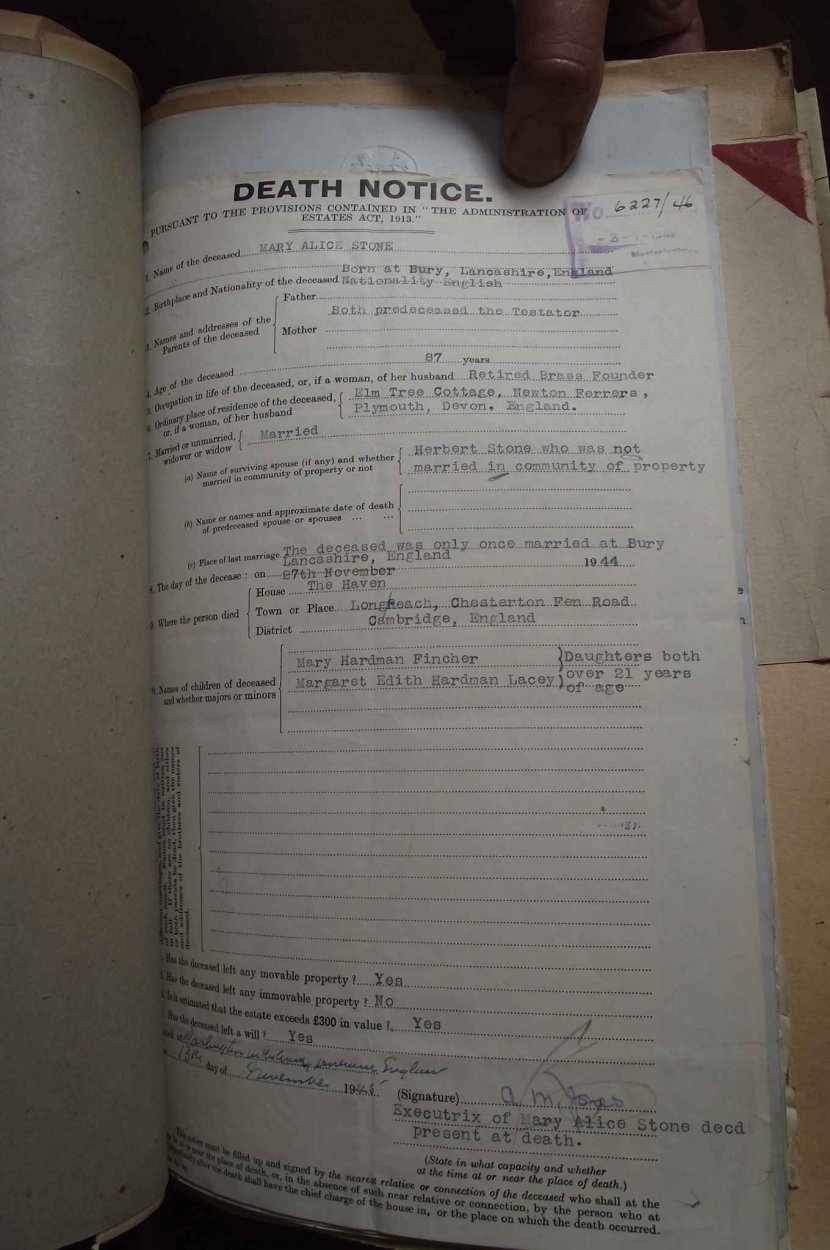 DEATH NOTICE.
PURSUANT TO THE PROVISIONS CONTAINED IN "THE ADMINISTRATION OF
ESTATES ACT, 1913."
No. 6227/46
1. Name of the deceased MARY ALICE STONE
Born at Bury, Lancashire, England
2. Birthplace and Nationality of the deceased Nationality English
3. Names and addresses of the Parents of the deceased
Father
Both predeceased the Testator
Mother
4. Age of the deceased 87 years
5. Occupation in life of the deceased, or, if a woman, of her husband Retired Brass Founder
6. Ordinary place of residence of the deceased, or, if a woman, of her husband
Elm Tree Cottage, Newton Ferrers,
Plymouth, Devon, England.
7. Married or unmarried, widower or widow Married
(a) Name of surviving spouse (if any) and whether married in community of property or not
Herbert Stone who was not
married in community of property
(b) Name or names and approximate date of death
of predeceased spouse or spouses ... ...
(c) Place of last marriage The deceased was only once married at Bury
Lancashire, England
8. The day of the decease : on 27th November 1944
9. Where the person died
House The Haven
Town or Place Long Reach, Chesterton Fen Road
District Cambridge, England
Names of children of deceased
and whether majors or minors
Mary Hardman Fincher
Margaret Edith Hardman Lacey
Daughters both
over 21 years
of age
or both parents be dead, then give the names
and addresses of the brothers and sisters of
deceased.
Has the deceased left any movable property ? Yes
Has the deceased left any immovable property ? No
Is it estimated that the estate exceeds £300 in value ? Yes
Has the deceased left a will ? Yes
13th day of November 1945
(Signature) A. M. Jones
Executrix of Mary Alice Stone decd
present at death.
(State in what capacity and whether
at the time at or near the place of death.)
This notice must be filled up and signed by the nearest relative or connection of the deceased who shall at the
at or near the place of death, or, in the absence of such near relative or connection, by the person who at
immediately after the death shall have the chief charge of the house in, or the place on which the death occurred.